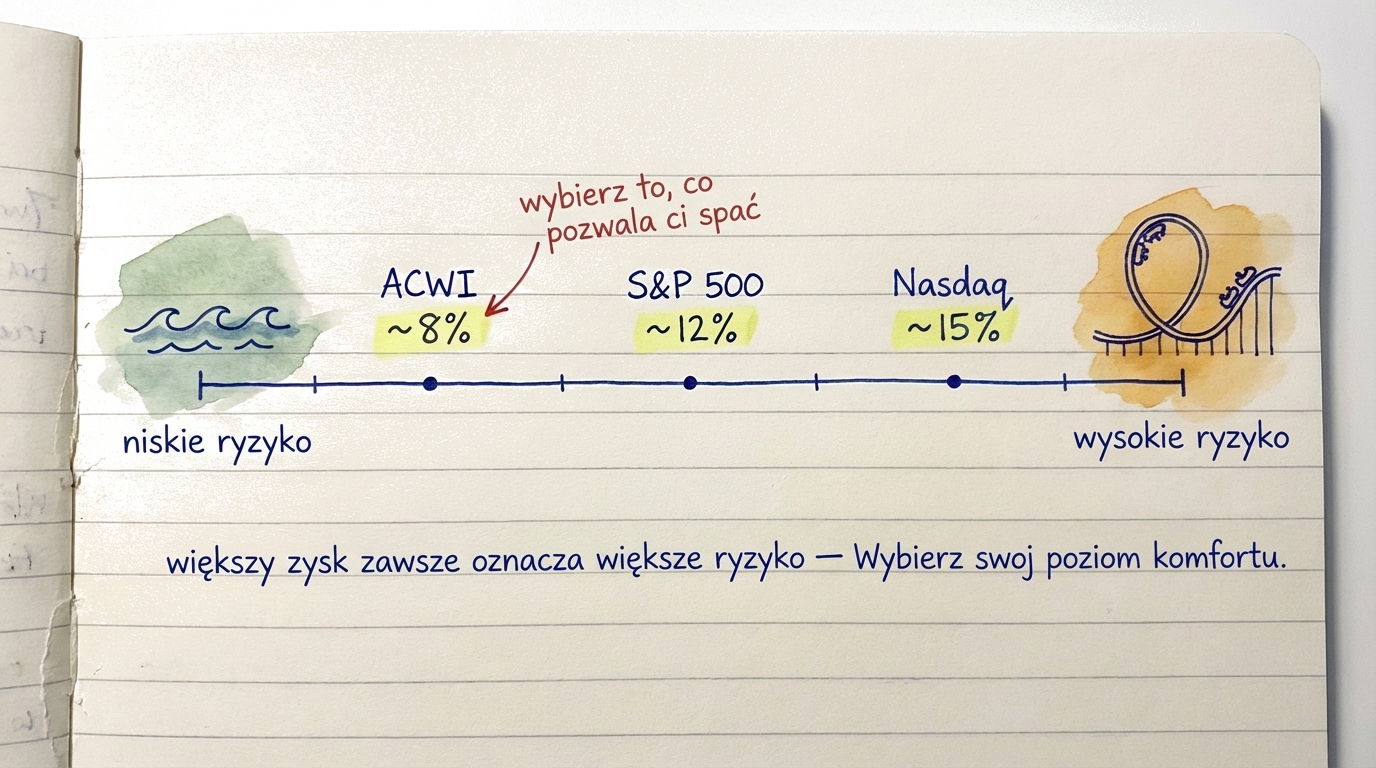 wybierz to, co
pozwala ci spać
ACWI
~8%
S&P 500
~12%
Nasdaq
~15%
niskie ryzyko
wysokie ryzyko
większy zysk zawsze oznacza większe ryzyko — Wybierz swoj poziom komfortu.